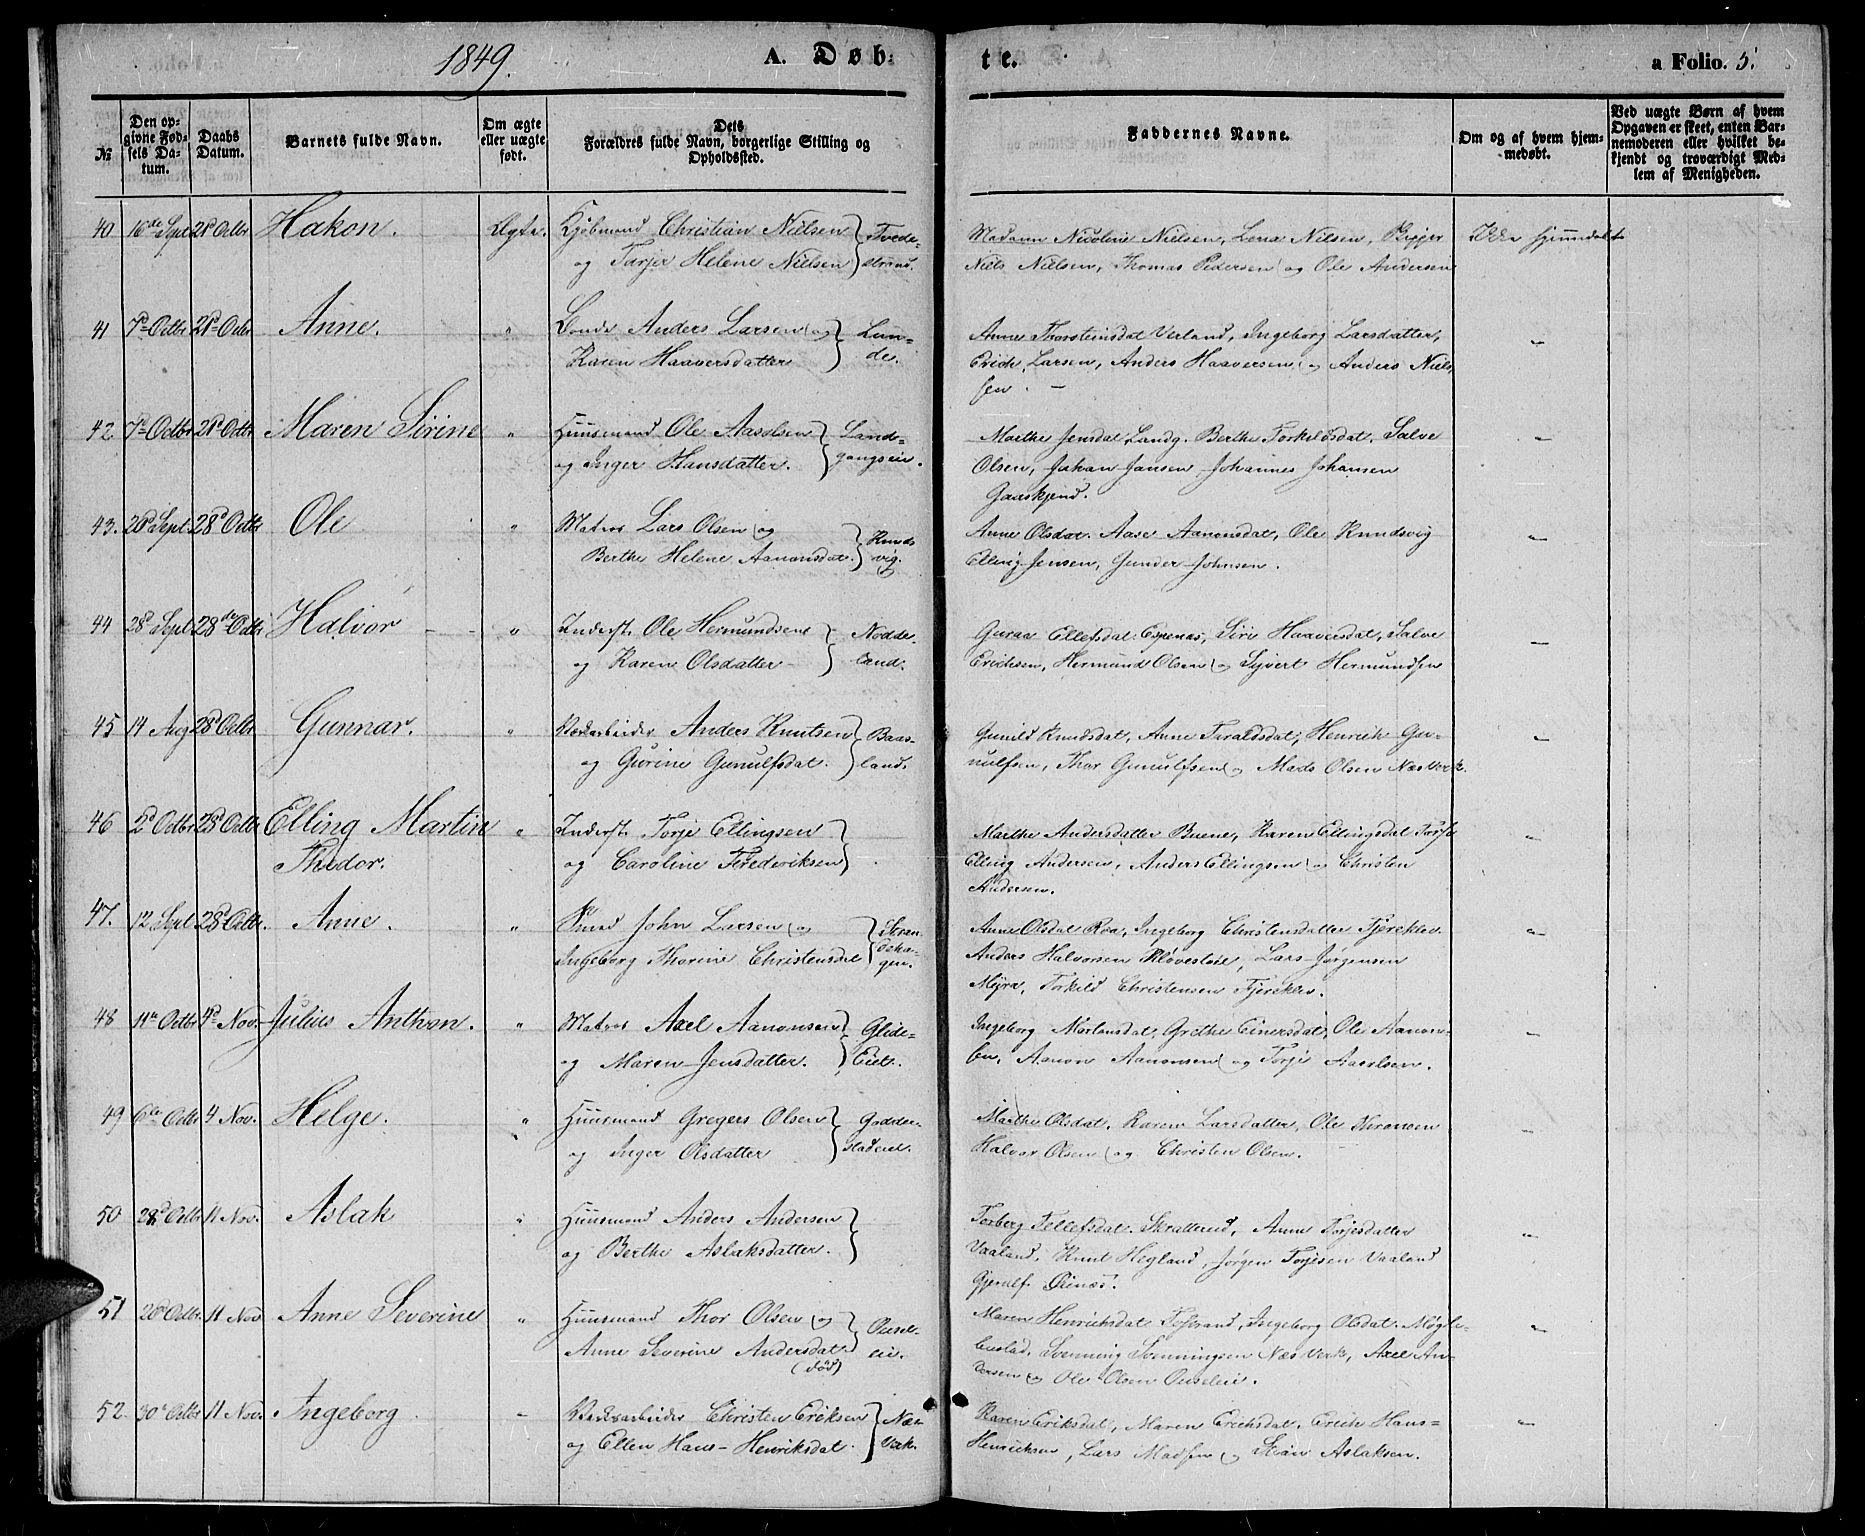 1849.
A. Døb-
te.
a Folio. 5.
№
Den op-
givne Fød-
sels Da-
tum.
Daabs
Datum.
Barnets fulde Navn.
Om ægte
eller uægte
født.
Dets
Forældres fulde Navn, borgerlige Stilling og
Opholdssted.
Faddernes Navne.
Om og af hvem hjem-
medøbt.
Ved uægte Børn af hvem
Opgaven er skeet, enten Bar-
nemoderen eller hvilket be-
kjendt og troværdigt Med-
lem af Menigheden.
40 16de Sept 21d Octbr Hakon. Ægte. Kjøbmand Christian Nielsen Tvede-
og Tarjer Helene Nielsen strand.
Madam Nicoline Nielsen, Lena Nielsen,
Niels Nielsen, Thomas Pedersen og Ole Andersen
Ikke hjemmedøbt
41 7d Octbr 21d Octbr Anne. " Anders Larsen og Lun-
Karen Haaversdatter de.
Anne Thorsteinsdat Verland, Ingeborg Larsdatter,
Erich Larsen, Anders Haaversen og Anders Niel-
sen. —
42 7d Octbr 21d Octbr Maren Sirine " Huusmand Ole Aasolsen Land-
og Inger Hansdatter. gangseie.
Marthe Jensdat Landg. Berthe Torkildsdat. Salve
Olsen, Johan Jansen Johannes Johansen
43. 20d Sept. 28d Octbr Ole " Matros Lars Olsen og Knuds
Berthe Helene Aanonsdat. vig.
Anne Olsdat. Aase Aanonsdat, Ole Knudsvig
Elling Jensen, Gunder Johnsen.
44 28d Sept 28de Octbr Halvor " Inderst. Ole Hermundsen Nodde-
og Karen Olsdatter land.
Guraa Ellefsdat Espenæs, Siri Haaversdat, Salve
Erichsen, Hermund Olsen og Syvert Hermundsen
45 14 Aug 28d Octbr Gunnar. " Værksarbeider Anders Knutsen Baas-
og Gurine Gunulfsdat. land.
Gunild Knudsdat, Anne Taraldsdat, Henrich Gu-
nulfsen, Thor Gunulfsen og Mads Olsen Næs Værk.
46 2d Octbr 28d Octbr Elling Martin " Inderst. Torje Ellingsen
Thedor. og Caroline Frederiksen
Marthe Andersdatter Buene, Karen Ellingsdat
Elling Andersen, Anders Ellingsen og Christen
Andersen.
47. 12 Sept 28d Octbr. Anne. " John Larsen og Stran
Ingeborg Thorine Christensdat gen.
Anne Olsdat Roa, Ingeborg Christensdatter Fjereklev
Anders Halvorsen Kløvestøil, Lars Jørgensen
Myra, Torkild Christensen Fjereklev.
48 11te Octbr 4d Nov. Julius Anthon. " Matros Axel Aanonsen Glide-
og Maren Jensdatter. Eiet.
Ingeborg Mortensdat, Grethe Einersdat, Ole Aanon-
sen, Aanon Aanonsen og Torje Aasolsen.
49 6te Octbr 4 Nov. Helge. " Huusmand Gregers Olsen Godder-
og Inger Olsdatter stadeiet.
Marthe Olsdat, Karen Larsdatter, Ole
Halvor Olsen og Christen Olsen.
50 28d Octbr 11 Nov. Aslak " Huusmand Anders Andersen
og Berthe Aslaksdatter.
Torberg Tellefsdat. Skattered, Anne Torjesdatter
Vaaland, Knut Hegland, Jørgen Torjesen Vaaland
51 20d Octbr. 11 Nov Anne Severine " Huusmand Thor Olsen og Ousel-
Anne Severine Andersdat. eie.
(død)
Maren Henrichsdat Fosstrand, Ingeborg Olsdat. Møgle-
bustad. Svenning Svenningsen Næs Værk, Axel An-
dersen og Ole Olsen Ouseleie.
52. 30d Octbr 11 Nov. Ingeborg. - Værksarbeider Christen Eriksen Næs
og Ellen Hans-Henriksdat. Værk.
Karen Eriksdat, Maren Erichsdat, Erich Hans-
Henriksen, Lars Madsen og Stian Aslaksen.